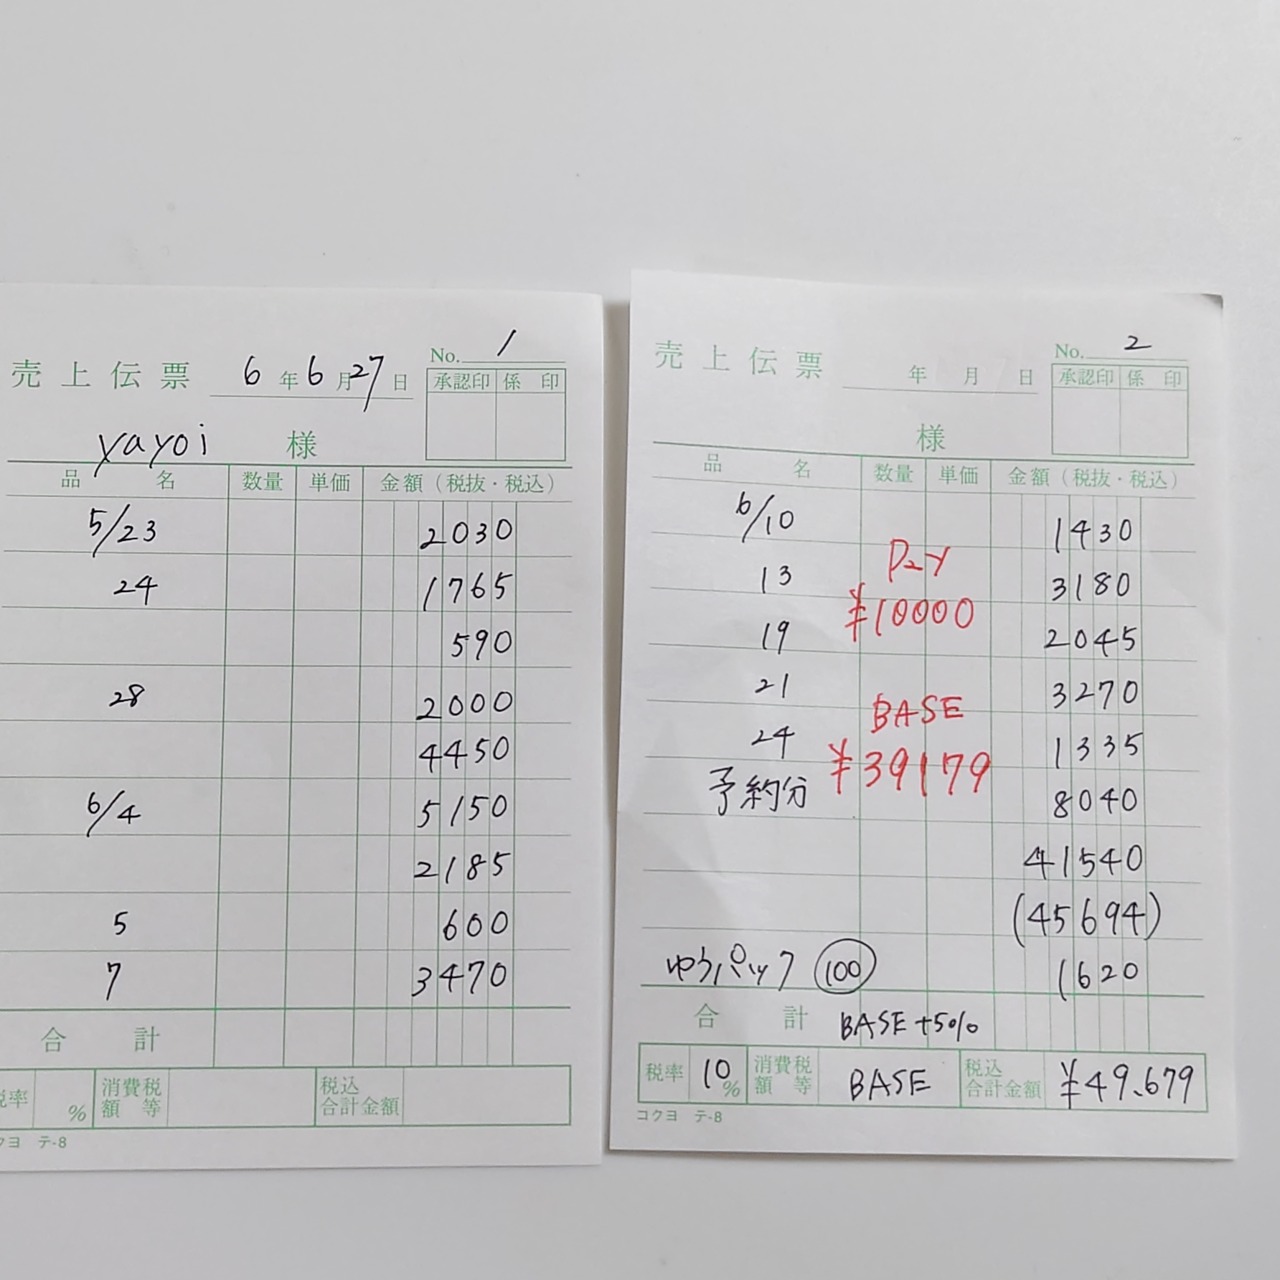 売上伝票 6年6月27日 No. 1
承認印 係印
yayoi 様
品名 数量 単価 金額(税抜・税込)
5/23 2030
24 1765
590
28 2000
4450
6/4 5150
2185
5 600
7 3470
合計
税率 % 消費税額等 税込合計金額
コクヨ テ-8
売上伝票 年 月 日 No. 2
承認印 係印
様
品名 数量 単価 金額(税抜・税込)
6/10 1430
Pay
13 3180
¥10000
19 2045
21 3270
BASE
24 1335
¥39179
予約分 8040
41540
(45694)
ゆうパック 100 1620
合計 BASE+5%
税率 10% 消費税額等 BASE 税込合計金額 ¥49.679
コクヨ テ-8